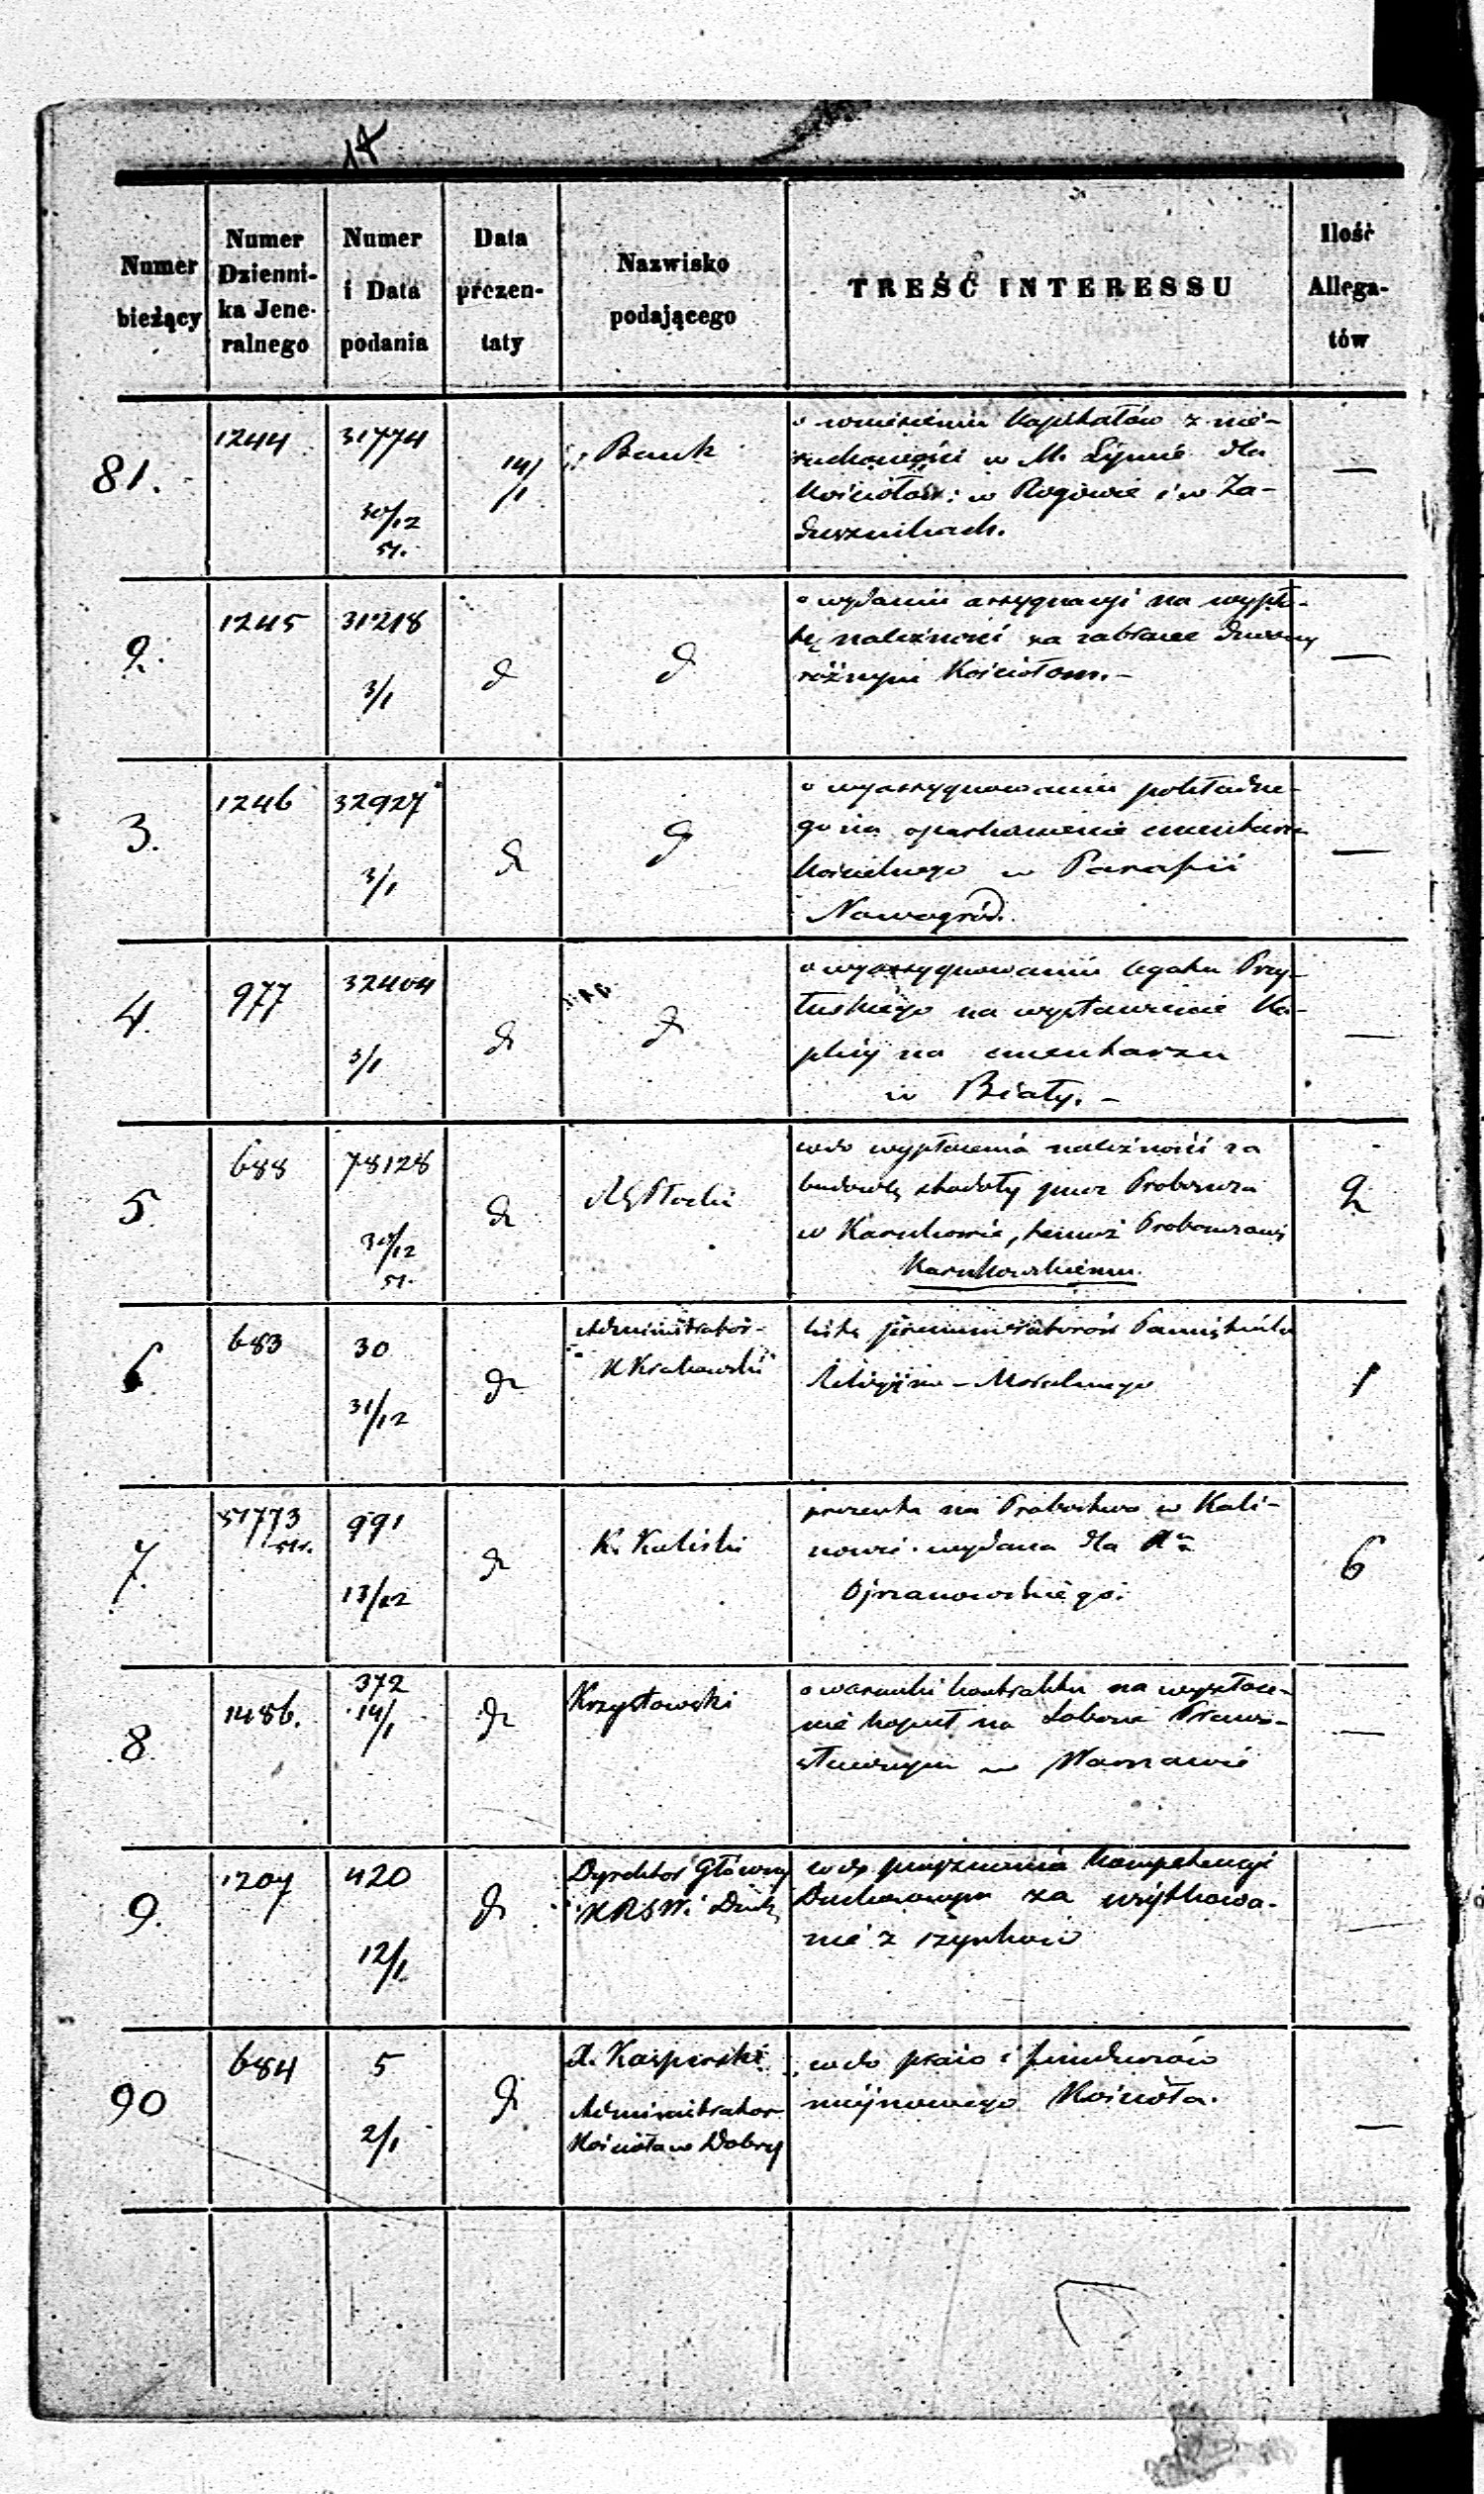 14
Numer bieżący
Numer Dzienni-ka Jene-ralnego
Numer i Data podania
Data prezen-taty
Nazwisko podającego
TREŚĆ INTERESSU
Ilość Allega-tów
81. 1244 31774 30/12 51. 14/1 Bank
o wniesieniu Kapitałów z nie-
ruchomości w M. Lipnie dla
Kościołów: w Rogowie i w Za-
dusznikach.
—
2. 1245 31218 3/1 d d
o wydaniu assygnacyi na wypła-
tę należności za zabrane dzwony
różnym Kościołom. -
—
3. 1246 32927 3/1 d d
o wyassygnowaniu pokładne-
go na oparkanienie cmentarza
Kościelnego w Parafii
Nowogród.
—
4. 977 32404 3/1 d d
o wyassygnowaniu legatu Przy-
łuskiego na wystawienie Ka-
plicy na cmentarzu
w Biały. -
—
5. 688 78128 30/12 51. d RG Płocki
wdo wypłacenia należności za
budowlę stodoły przez Proboszcza
w Karnkowie, temuż Proboszczowi
Karnkowskiemu.
2
6. 683 30 31/12 d
Administrator
listę prenumeratorów Pamiętnika
Religijno-Moralnego
1
7. 51773 51r. 991 13/12 d K. Kaliski
prezenta na Probostwo w Kali-
nowie wydana dla Xa
Ojrzanowskiego.
6
8. 1486. 372 14/1 d Krzysztowski
o warunki kontraktu na wyzłoce-
nie kopuł na Soborze Prawo-
sławnym w Warszawie
—
9. 1207 420 12/1 d
Dyrektor Główny
KRSW i Duch.
wdo przyznania Kompetencyi
Duchownym za użytkowa-
nie z
—
90 684 5 2/1 d
X. Kasperski
Administrator
Kościoła w Dobry
wdo praw i funduszów
miejscowego Kościoła.
—